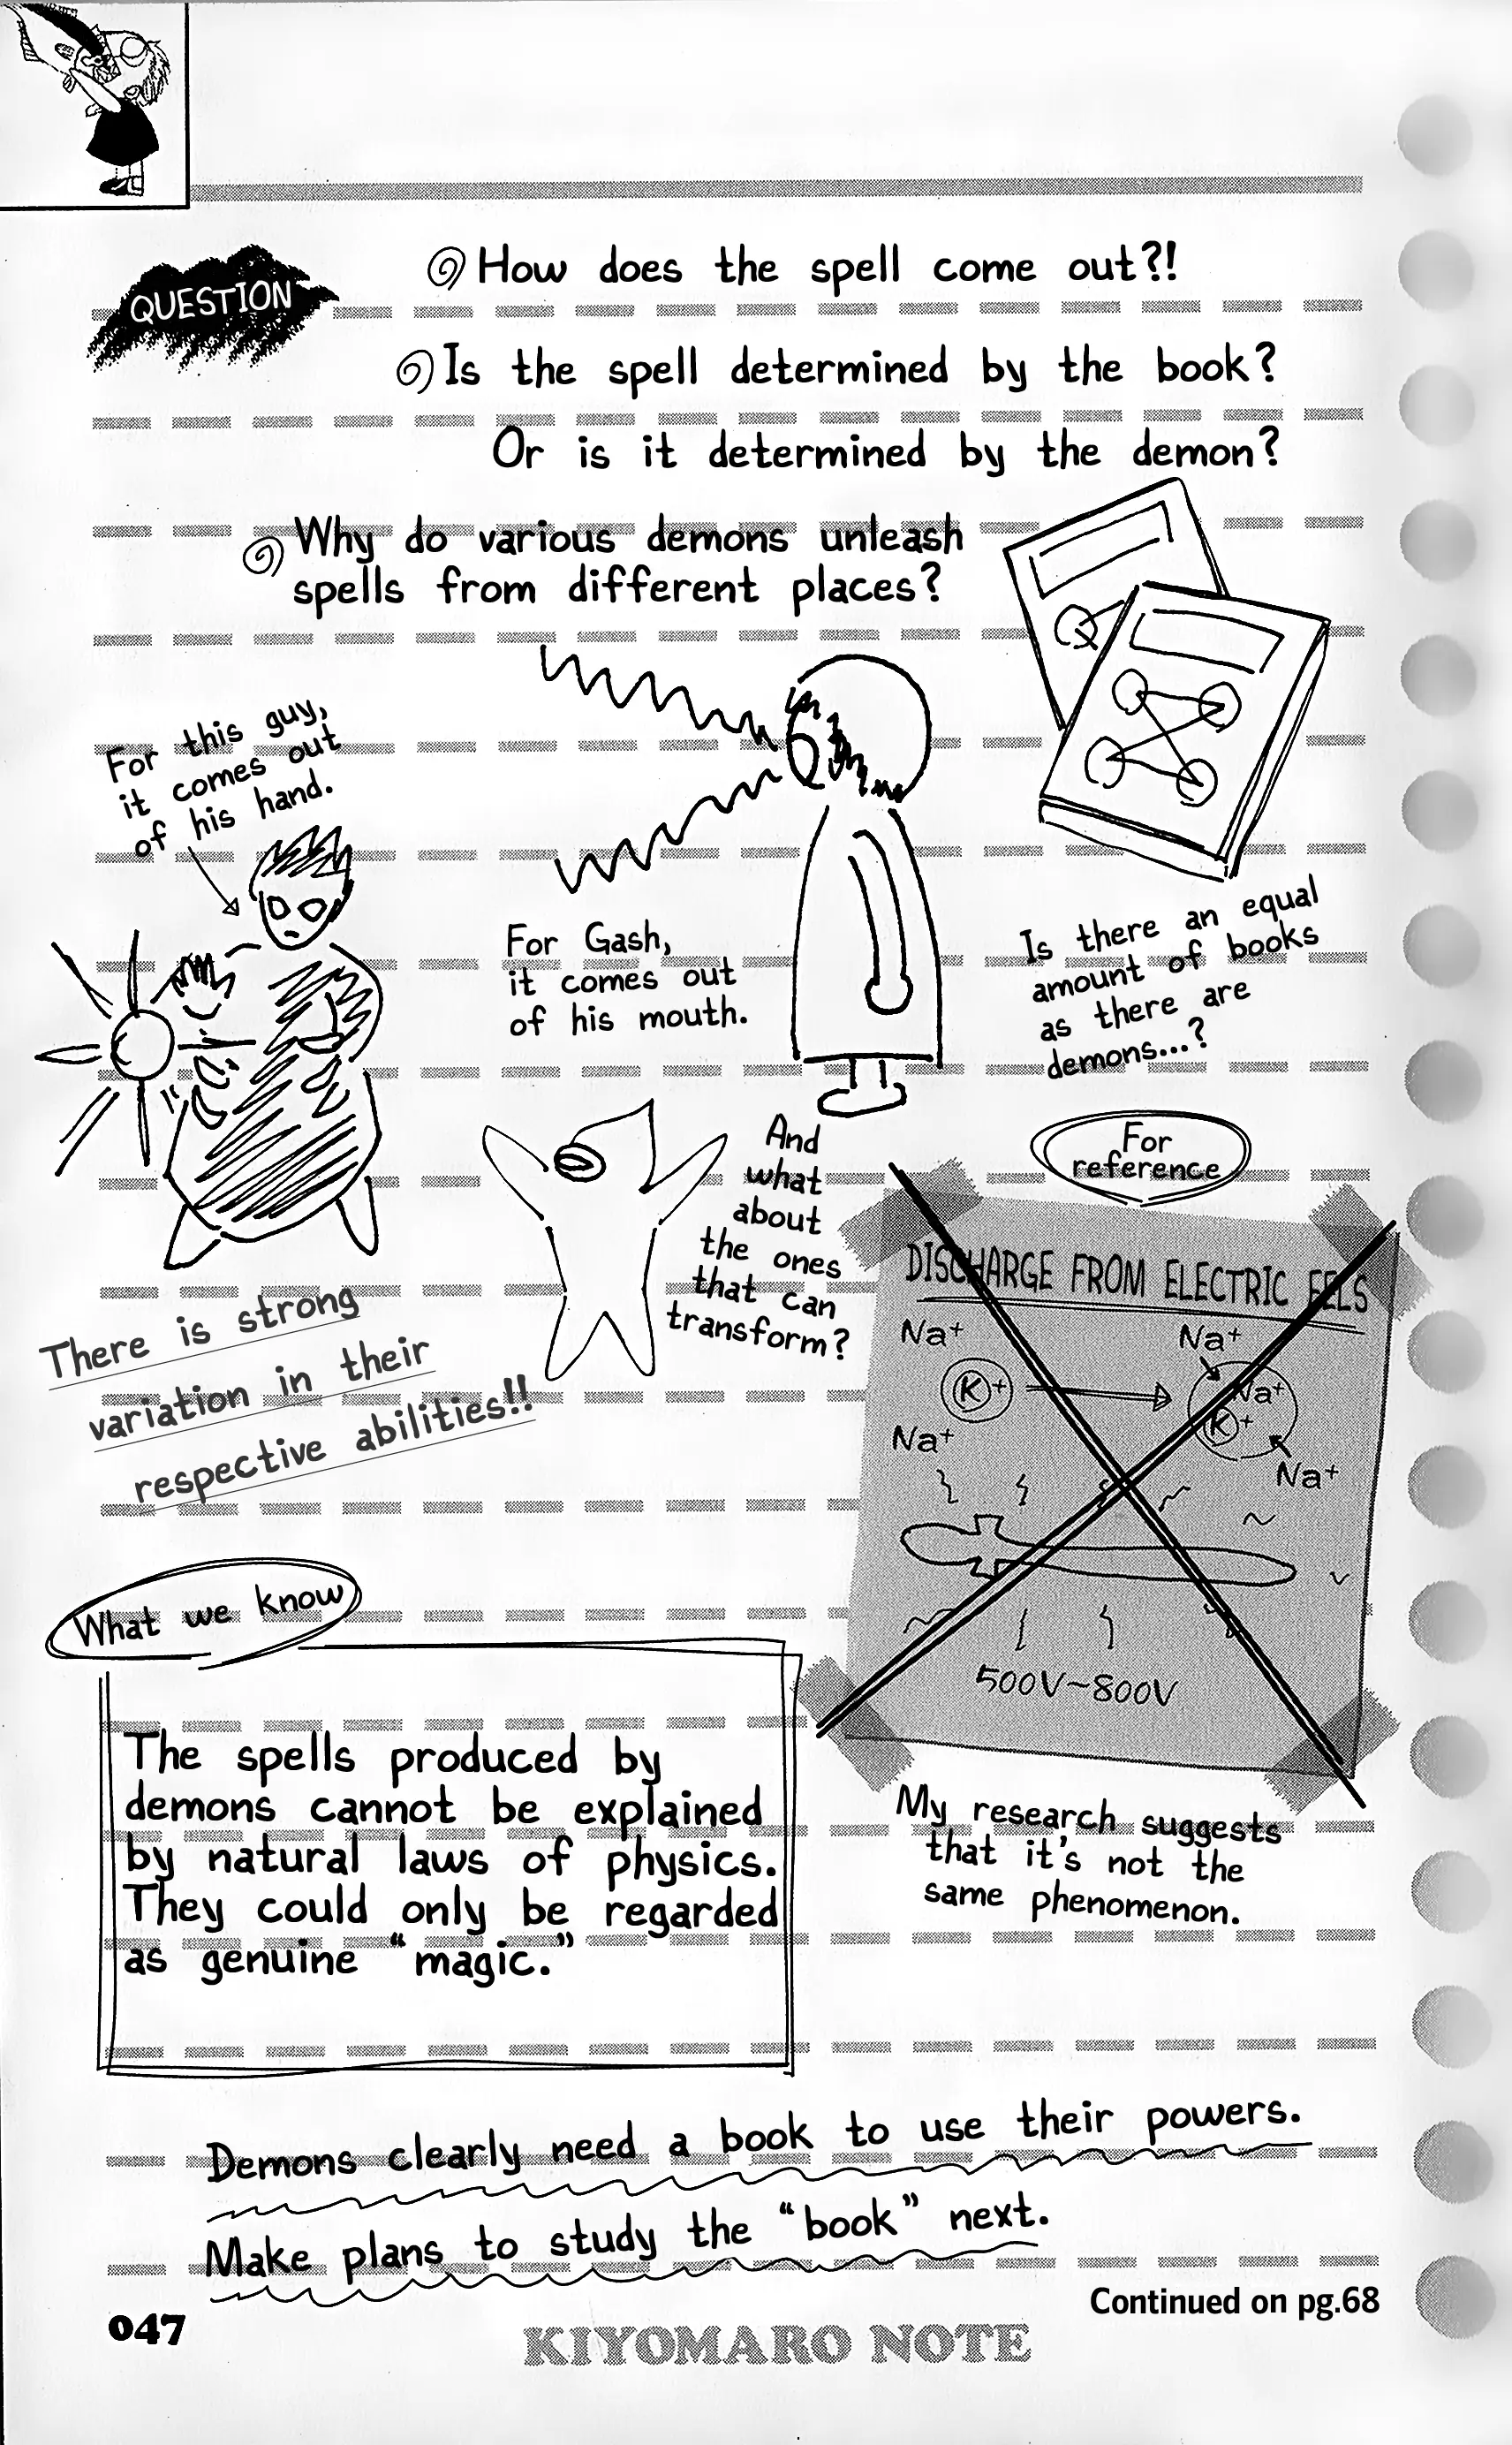 QUESTION
How does the spell come out?!
Is the spell determined by the book?
Or is it determined by the demon?
Why do various demons unleash
spells from different places?
For this guy,
it comes out
of his hand.
For Gash,
it comes out
of his mouth.
Is there an equal
amount of books
as there are
demons...?
And
what
about
the ones
that can
transform?
There is strong
variation in their
respective abilities!!
For
reference
DISCHARGE FROM ELECTRIC EELS
Na+
Na+
K+
Na+
K+
Na+
Na+
500V~800V
My research suggests
that it's not the
same phenomenon.
What we know
The spells produced by
demons cannot be explained
by natural laws of physics.
They could only be regarded
as genuine "magic."
Demons clearly need a book to use their powers.
Make plans to study the "book" next.
Continued on pg.68
047
KIYOMARO NOTE